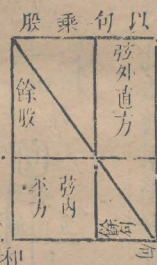 以句乘股
弦外直方
餘股
弦內平方
餘句
句
和